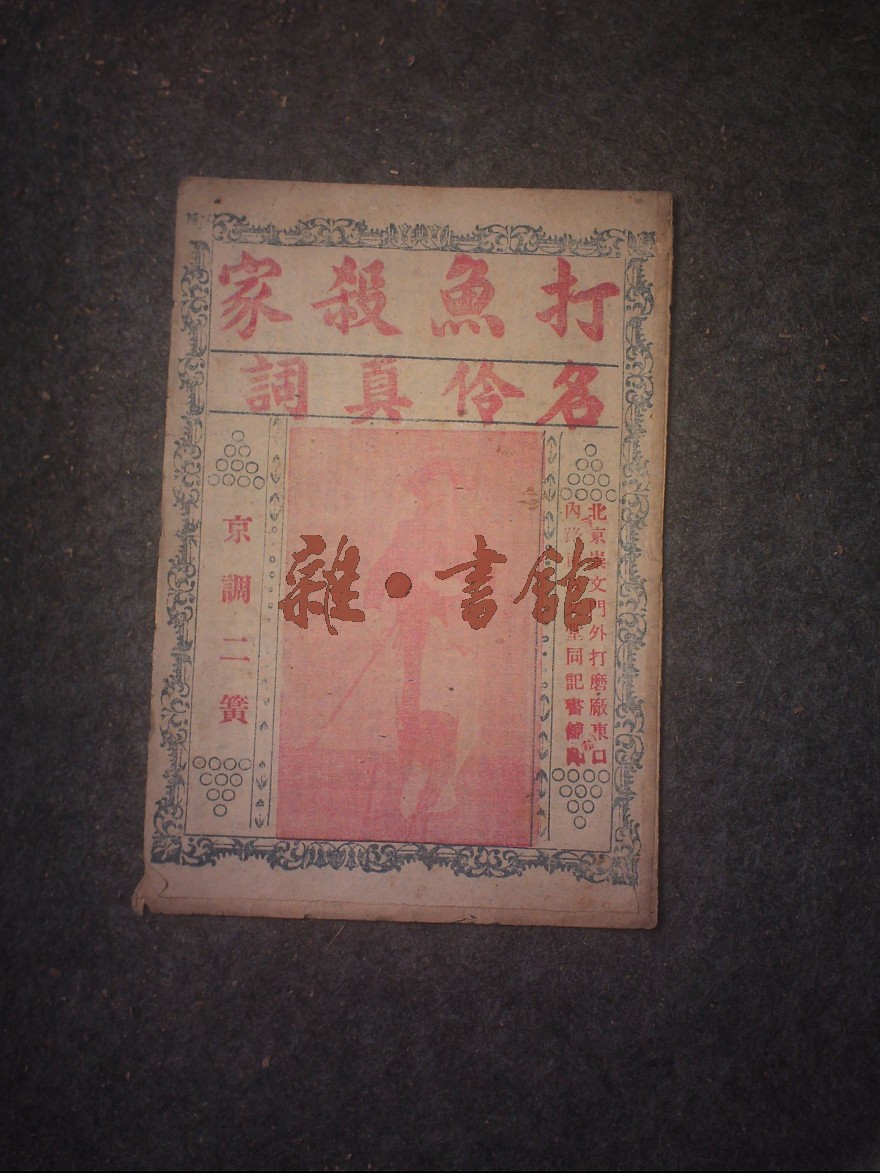 打魚殺家
名伶真詞
北京崇文門外打磨廠東口
內路 堂同記書舖印
京調二簧
雜•書館